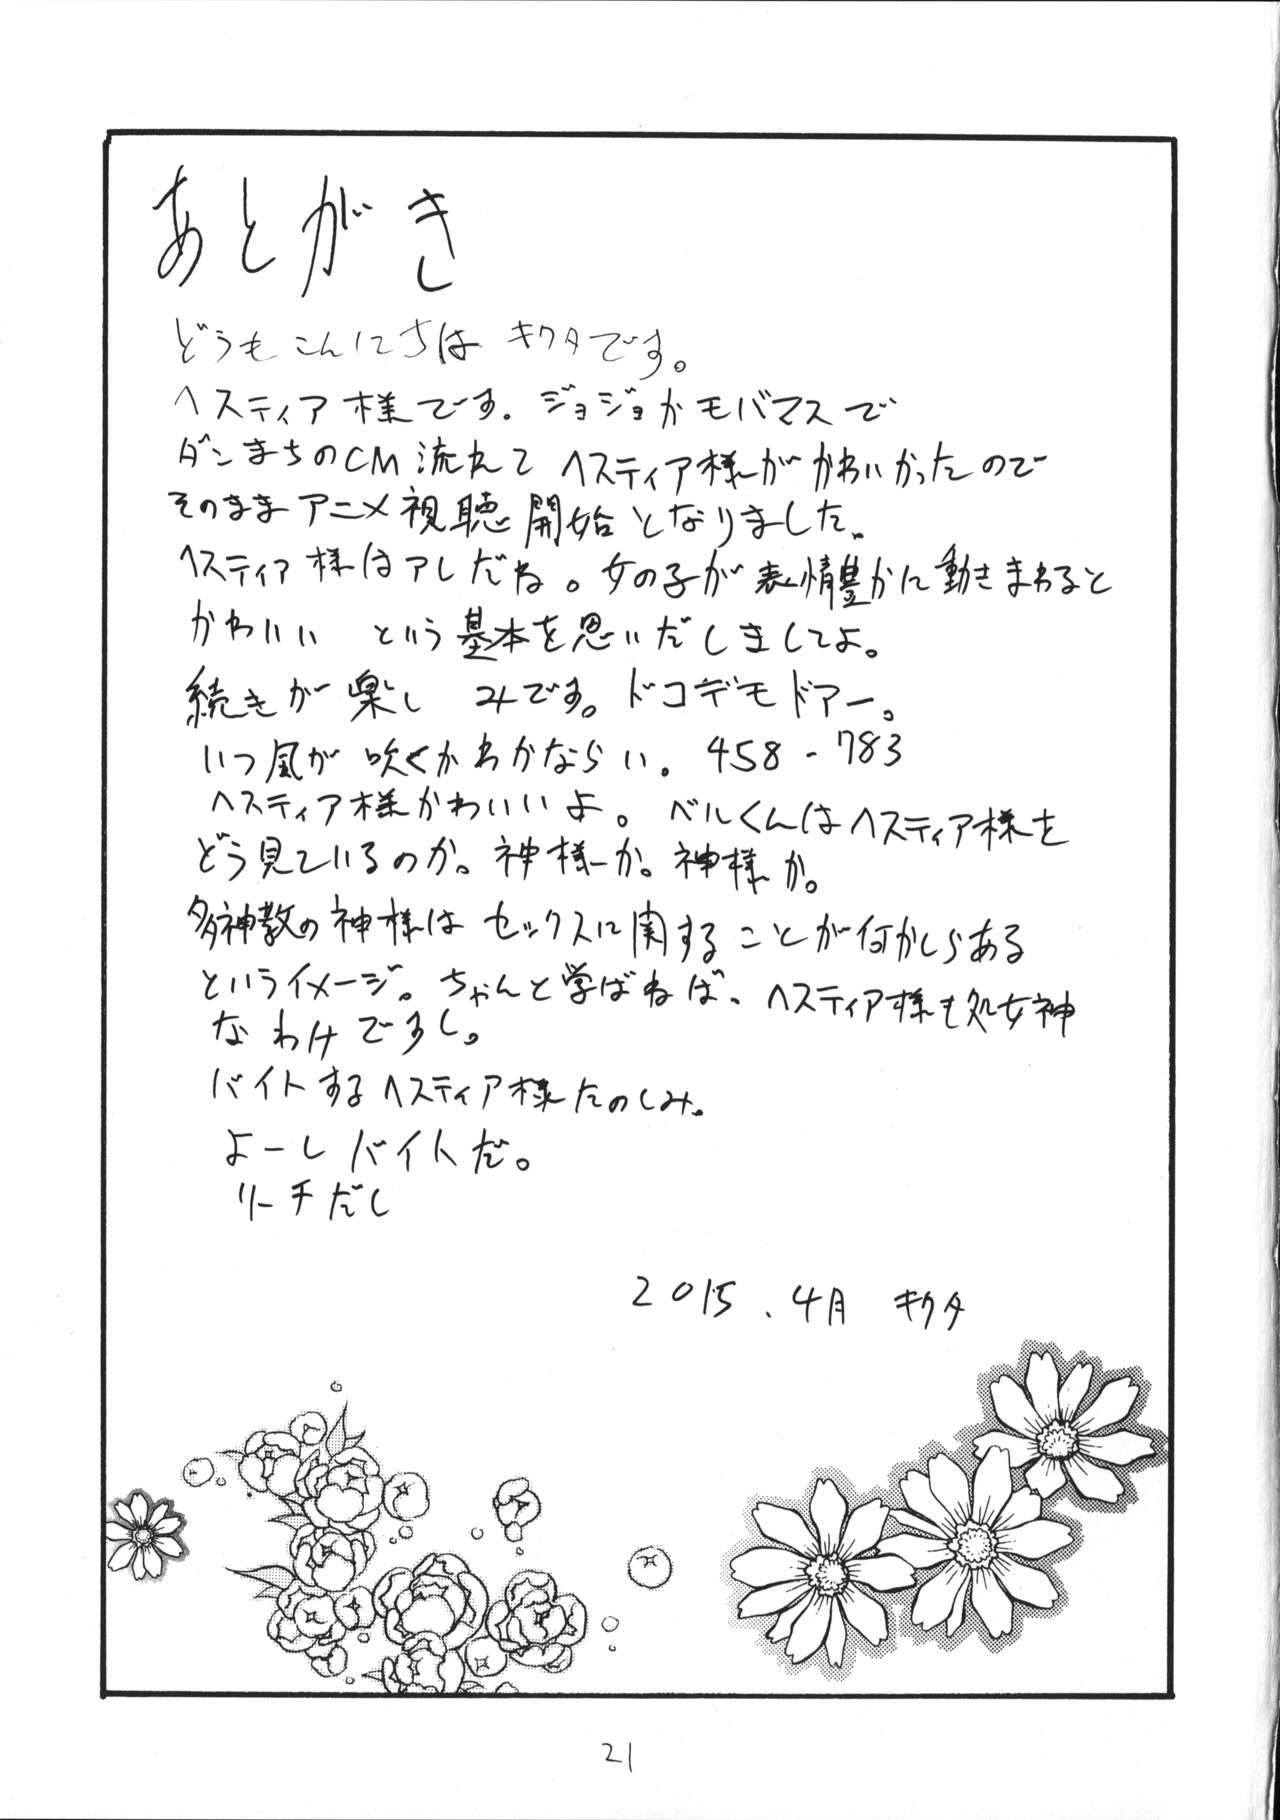 あとがき
どうもこんにちは キクタです。
ヘスティア様です。ジョジョかモバマスで
ダンまちのCM流れて ヘスティア様がかわいかったので
そのままアニメ視聴開始となりました。
ヘスティア様はアレだね。女の子が表情豊かに動きまわると
かわいい という基本を思いだしましてよ。
続きが楽しみです。ドコデモドアー。
いつ風が吹くかわかならい。458-783
ヘスティア様かわいいよ。ベルくんはヘスティア様を
どう見ているのか。神様ーか。神様か。
多神教の神様はセックスに関することが何かしらある
というイメージ。ちゃんと学ばねば、ヘスティア様も処女神
なわけですし。
バイトするヘスティア様たのしみ。
よーしバイトだ。
リーチだし
2015.4月 キクタ
21